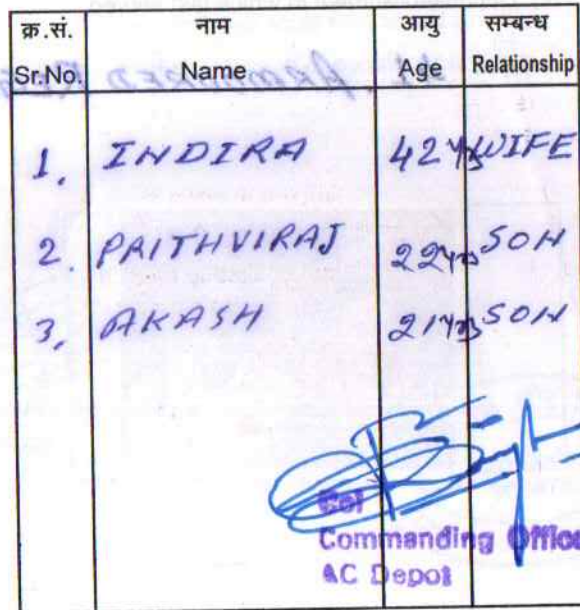 क्र.सं. नाम आयु सम्बन्ध
Sr.No. Name Age Relationship
1. INDIRA 42 yrs WIFE
2. PRITHVIRAJ 22 yrs SON
3. AKASH 21 yrs SON
Col
Commanding Office
AC Depot